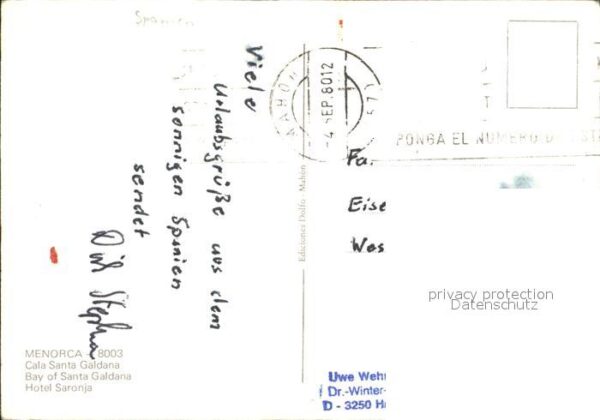 Spanien
Viele
Urlaubsgrüße aus dem
sonnigen Spanien
sendet
MENORCA - 8003
Cala Santa Galdana
Bay of Santa Galdana
Hotel Saronja
Ediciones Dolfo - Mahón
MAHON
-4 SEP. 80 12
PONGA EL NUMERO D
Fa.
Eise
Wes
privacy protection
Datenschutz
Uwe Wehr
Dr.-Winter-
D - 3250 H